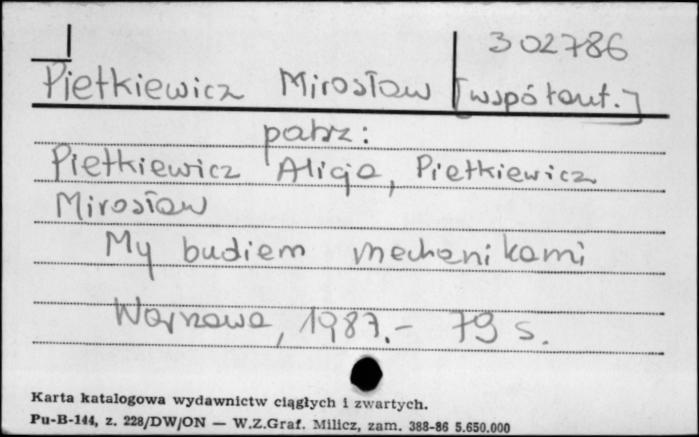 302786
Pietkiewicz Mirosław [współaut.]
patrz:
Pietkiewicz Alicja, Pietkiewicz
Mirosław
My budiem mechanikami
Warszawa, 1987.- 79 s.
Karta katalogowa wydawnictw ciągłych i zwartych.
Pu-B-144, z. 228/DW/ON — W.Z.Graf. Milicz, zam. 388-86 5.650.000